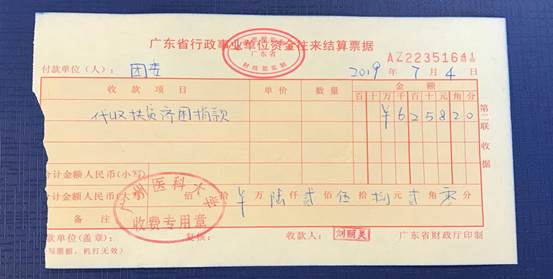 广东省行政事业单位资金往来结算票据
广东省
财政部监制
AZ22351641
付款单位(人): 团委
2019年7月4日
收款项目 单价 数量 金额
百十万千百十元角分
代收扶贫济困捐款 ¥625820
第二联 收据
合计金额人民币(小写)
合计金额人民币 佰 拾 ¥万陆仟贰佰伍拾捌元贰角零分
广州医科大学
收费专用章
备注
收款单位(盖章): 复核: 收款人: 刘丽英 广东省财政厅印制
(手写票据,机打无效)